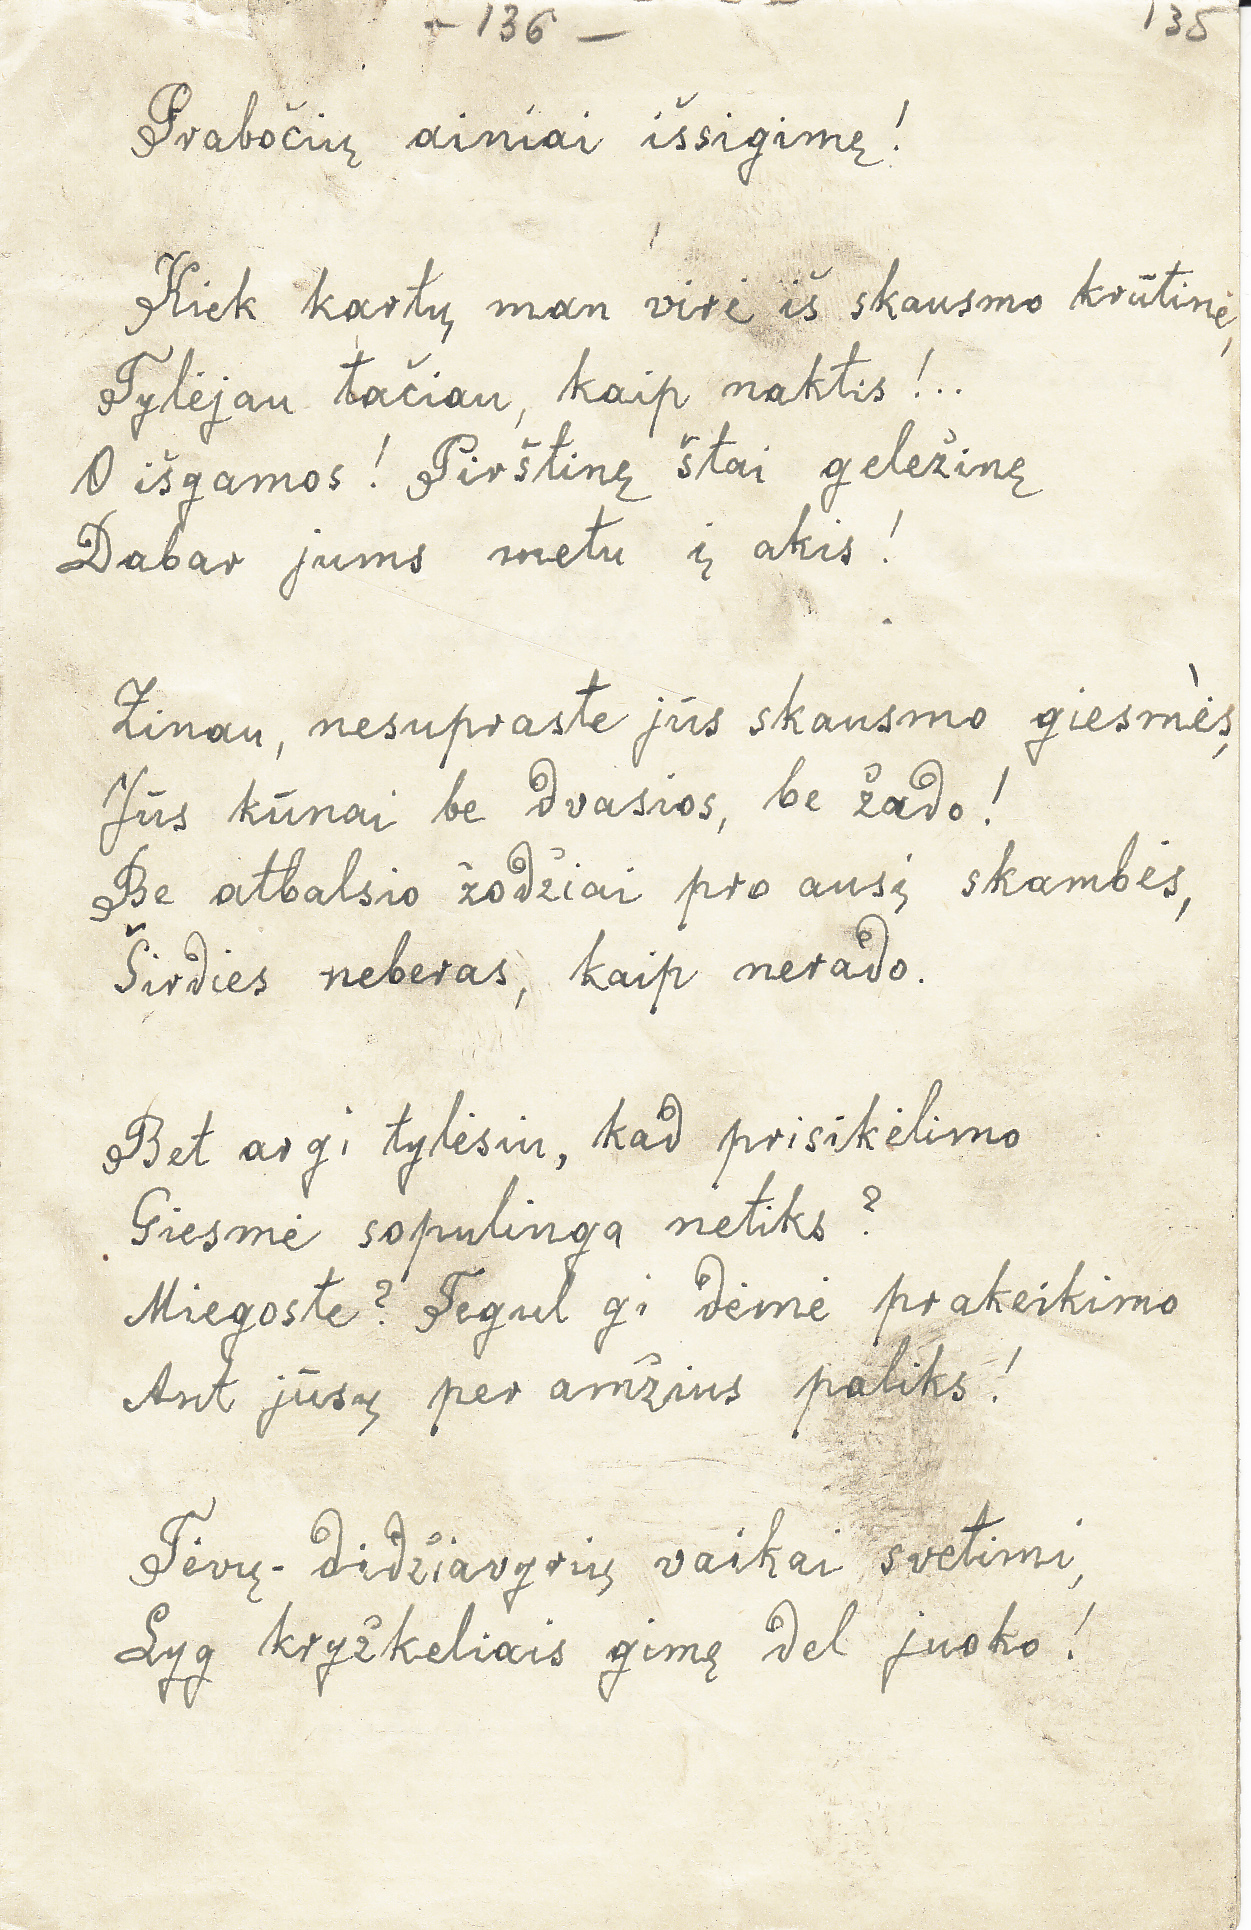 - 136 -
135
Prabočių ainiai išsigimę!
Kiek kartų man virė iš skausmo krūtinė,
Tylėjau tačiau, kaip naktis!..
O išgamos! Pirštinę štai geležinę
Dabar jums metu į akis!
Žinau, nesupraste jūs skausmo giesmės,
Jūs kūnai be dvasios, be žado!
Be atbalsio žodžiai pro ausį skambės,
Širdies neberas, kaip nerado.
Bet argi tylėsiu, kad prisikėlimo
Giesmė sopulinga netiks?
Miegoste? Tegul gi dėmė prakeikimo
Ant jūsų per amžius paliks!
Tėvų-didžiavyrių vaikai svetimi,
Lyg kryžkeliais gimę del juoko!